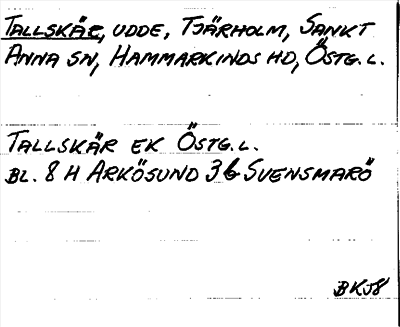 TALLSKÄR, UDDE, TJÄRHOLM, SANKT
ANNA SN, HAMMARKINDS HD, ÖSTG. L.
TALLSKÄR EK ÖSTG. L.
BL. 8 H ARKÖSUND 3 b SVENSMARÖ